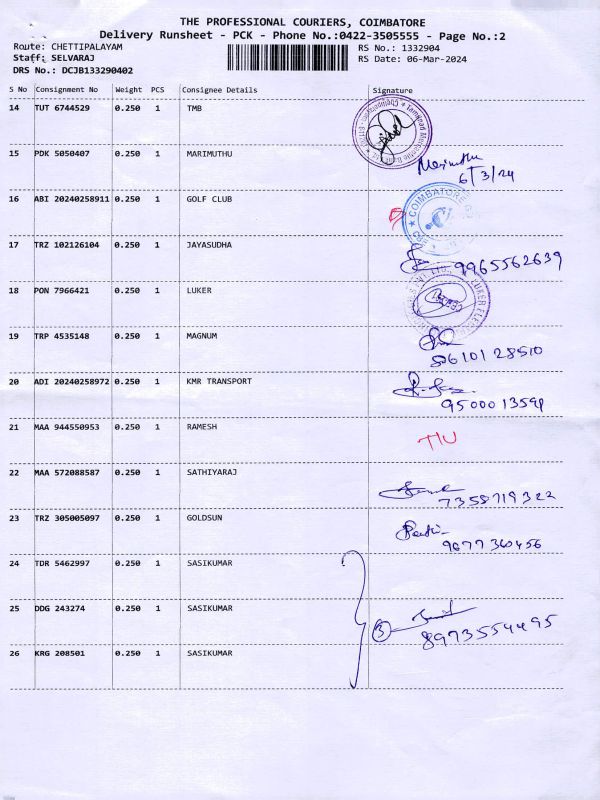 THE PROFESSIONAL COURIERS, COIMBATORE
Delivery Runsheet - PCK - Phone No.:0422-3505555 - Page No.:2
Route: CHETTIPALAYAM
Staff: SELVARAJ
DRS No.: DCJB133290402
RS No.: 1332904
RS Date: 06-Mar-2024
S No Consignment No Weight PCS Consignee Details Signature
14 TUT 6744529 0.250 1 TMB
15 PDK 5050407 0.250 1 MARIMUTHU Marimuthu
6/3/24
16 ABI 20240258911 0.250 1 GOLF CLUB COIMBATORE
17 TRZ 102126104 0.250 1 JAYASUDHA 9965562639
18 PON 7966421 0.250 1 LUKER LUKER
19 TRP 4535148 0.250 1 MAGNUM
8610128510
20 ADI 20240258972 0.250 1 KMR TRANSPORT
21 MAA 944550953 0.250 1 RAMESH
22 MAA 572088587 0.250 1 SATHIYARAJ
7358719322
23 TRZ 305005097 0.250 1 GOLDSUN
9677360456
24 TDR 5462997 0.250 1 SASIKUMAR
25 DDG 243274 0.250 1 SASIKUMAR 3
8973554495
26 KRG 208501 0.250 1 SASIKUMAR